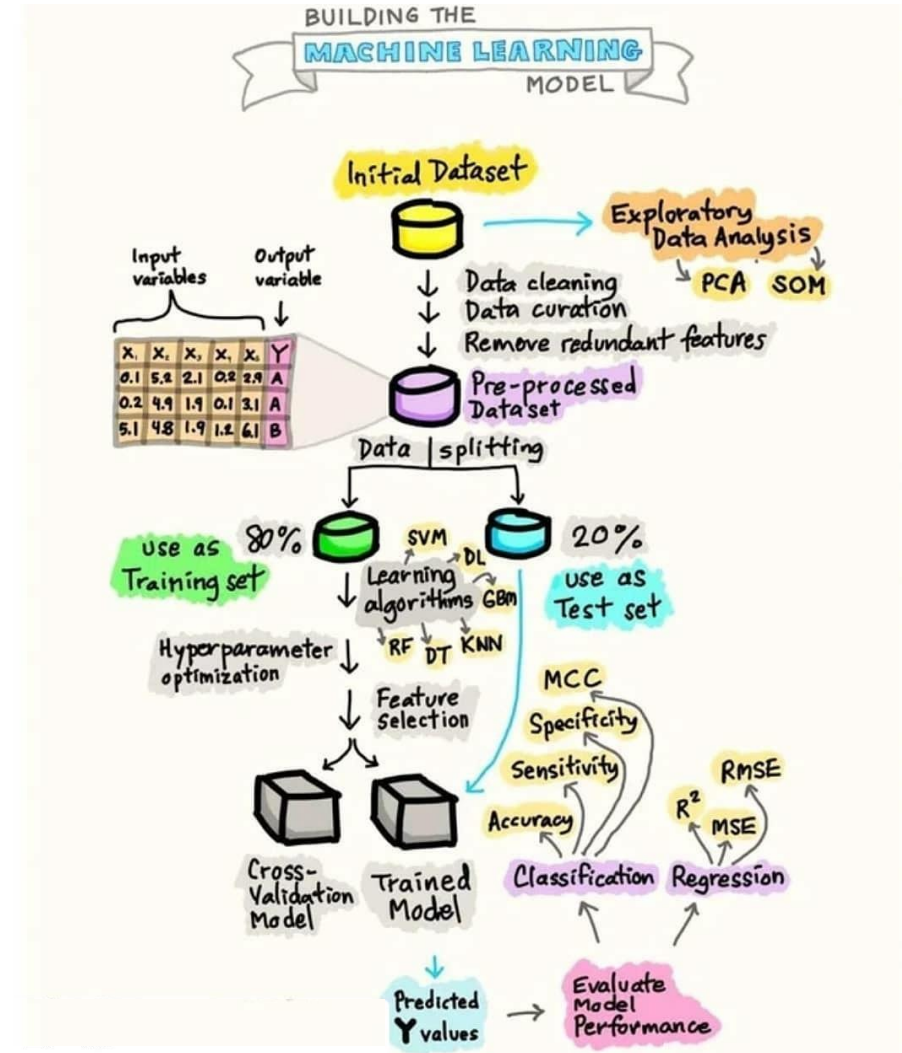 BUILDING THE
MACHINE LEARNING
MODEL
Initial Dataset
Exploratory
Data Analysis
PCA SOM
Input
variables
Output
variable
Data cleaning
Data curation
Remove redundant features
X₁ X₂ X₃ X₄ X₅ Y
0.1 5.2 2.1 0.2 2.9 A
0.2 4.9 1.9 0.1 3.1 A
5.1 4.8 1.9 1.2 6.1 B
Pre-processed
Dataset
Data splitting
80%
use as
Training set
20%
use as
Test set
Learning
algorithms
SVM
DL
GBm
KNN
DT
RF
Hyperparameter
optimization
Feature
Selection
Cross-
Validation
Model
Trained
Model
Predicted
Y values
Evaluate
Model
Performance
Classification
Accuracy
Sensitivity
Specificity
MCC
Regression
R²
MSE
RMSE